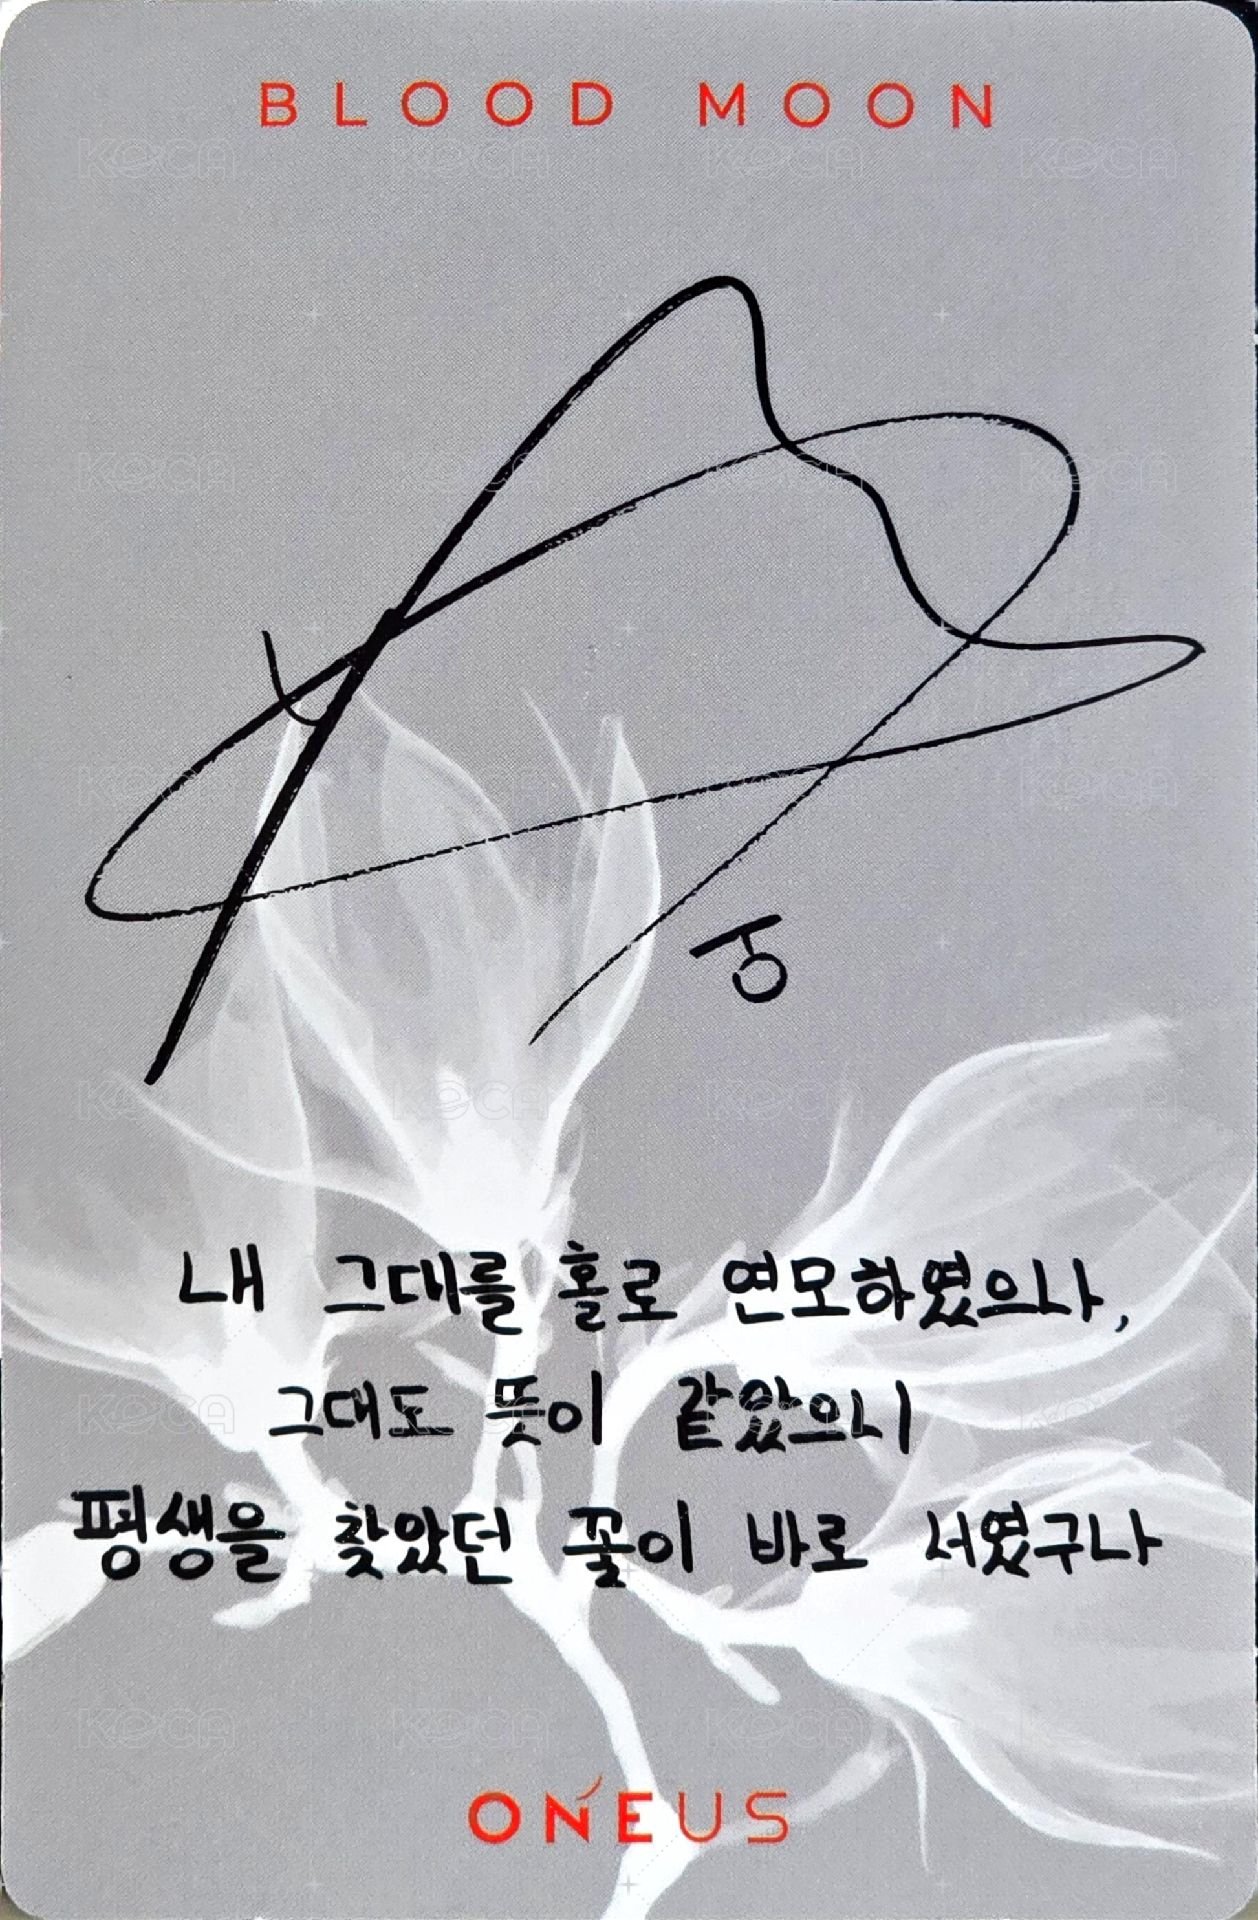 BLOOD MOON
내 그대를 홀로 연모하였으나,
그대도 뜻이 같았으니
평생을 찾았던 꽃이 바로 서였구나
ONEUS